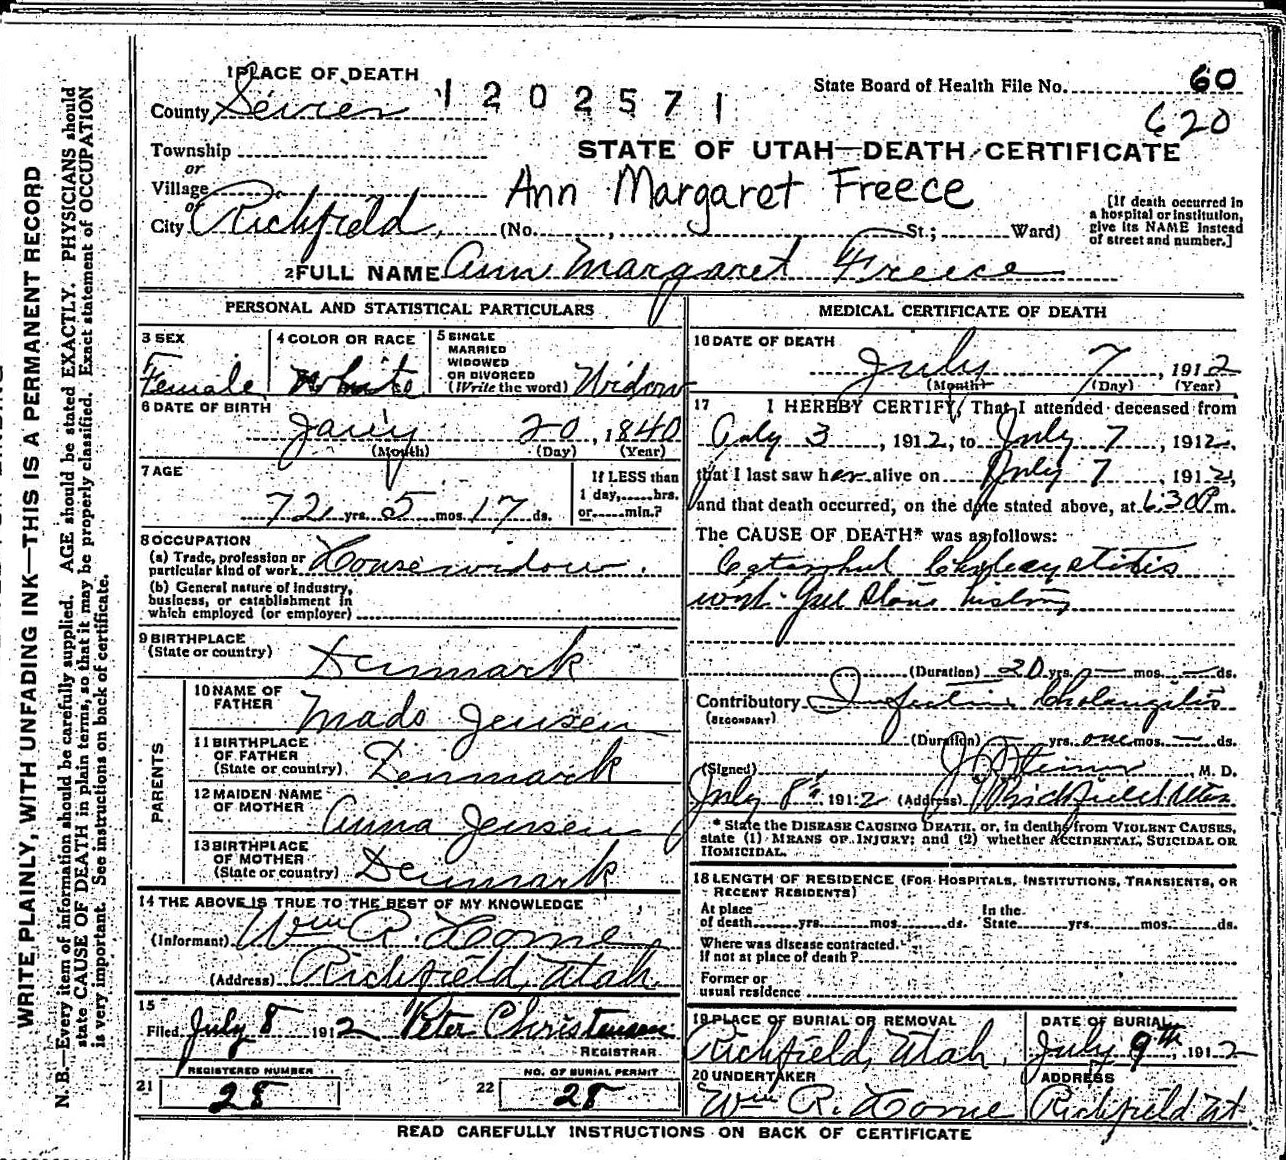 WRITE PLAINLY, WITH UNFADING INK—THIS IS A PERMANENT RECORD
N. B.—Every item of information should be carefully supplied. AGE should be stated EXACTLY. PHYSICIANS should
state CAUSE OF DEATH in plain terms, so that it may be properly classified. Exact statement of OCCUPATION
is very important. See instructions on back of certificate.
1 PLACE OF DEATH
County Sevier
1202571
State Board of Health File No. 60
620
Township
or
Village
or
City Richfield,
STATE OF UTAH—DEATH CERTIFICATE
Ann Margaret Freece
(No. , St.; Ward)
[If death occurred in
a hospital or institution,
give its NAME instead
of street and number.]
2 FULL NAME Ann Margaret Freece
PERSONAL AND STATISTICAL PARTICULARS
3 SEX
Female
4 COLOR OR RACE
White
5 SINGLE
MARRIED
WIDOWED
OR DIVORCED
(Write the word) Widow
6 DATE OF BIRTH
Jan'y 20, 1840
(Month) (Day) (Year)
7 AGE
72 yrs. 5 mos. 17 ds.
If LESS than
1 day, hrs.
or min.?
8 OCCUPATION
(a) Trade, profession or
particular kind of work Housewidow.
(b) General nature of industry,
business, or establishment in
which employed (or employer)
9 BIRTHPLACE
(State or country) Denmark
PARENTS
10 NAME OF
FATHER Mads Jensen
11 BIRTHPLACE
OF FATHER
(State or country) Denmark
12 MAIDEN NAME
OF MOTHER Anna Jensen
13 BIRTHPLACE
OF MOTHER
(State or country) Denmark
14 THE ABOVE IS TRUE TO THE BEST OF MY KNOWLEDGE
(Informant) Wm R. Horne
(Address) Richfield, Utah.
15
Filed July 8 1912 Peter Christensen
REGISTRAR
REGISTERED NUMBER
21 28
NO. OF BURIAL PERMIT
22 28
MEDICAL CERTIFICATE OF DEATH
16 DATE OF DEATH
July 7, 1912
(Month) (Day) (Year)
17 I HEREBY CERTIFY, That I attended deceased from
July 3, 1912, to July 7, 1912,
that I last saw her alive on July 7 1912,
and that death occurred, on the date stated above, at 6.30 P.m.
The CAUSE OF DEATH* was as follows:
Catarrhal Cholecystitis
with Gall Stone history
(Duration) 20 yrs. — mos. — ds.
Contributory Cholangitis
(SECONDARY)
(Duration) — yrs. one mos. — ds.
(Signed) M. D.
July 8th, 1912 (Address) Richfield Utah
* State the DISEASE CAUSING DEATH, or, in deaths from VIOLENT CAUSES,
state (1) MEANS OF INJURY; and (2) whether ACCIDENTAL, SUICIDAL OR
HOMICIDAL.
18 LENGTH OF RESIDENCE (FOR HOSPITALS, INSTITUTIONS, TRANSIENTS, OR
RECENT RESIDENTS)
At place
of death yrs. mos. ds.
In the
State yrs. mos. ds.
Where was disease contracted.
If not at place of death?
Former or
usual residence
19 PLACE OF BURIAL OR REMOVAL
Richfield, Utah.
DATE OF BURIAL
July 9th, 1912
20 UNDERTAKER
Wm R. Horne
ADDRESS
Richfield Ut
READ CAREFULLY INSTRUCTIONS ON BACK OF CERTIFICATE